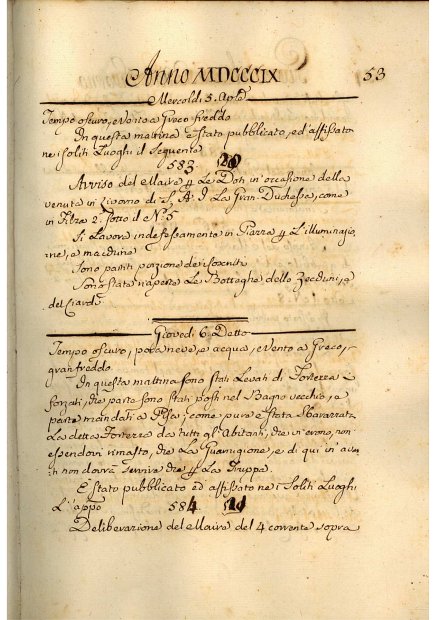 Anno MDCCCIX 53
Mercoldì 5. Aple
Tempo oscuro, e Vento a Greco freddo
In questa mattina è stato pubblicato, ed'affissato
nei soliti Luoghi il seguente
583 20
Avviso del Maire p Le Doti in occasione della
venuta in Livorno di S. A. I. La Gran Duchessa, come
in Filza 2: sotto il N.° 5
Si Lavora indefessamente in Piazza p L'illuminazio
ne, e macchina
Sono partiti porzione dei
Sono state riaperte Le Botteghe dello Zecchini, e
del Ciardi
Giovedì 6. Detto
Tempo oscuro, poca neve, e acqua, e Vento a Greco,
gran freddo
In questa mattina sono stati Levati di Fortezza i
forzati, che parte sono stati posti nel Bagno vecchio, e
parte mandati a Pisa; come pure è stata sbarazzata
La detta Fortezza da tutti gl'Abitanti, che v'erono, non
essendovi rimasto, che La Guarnigione, e di qui in avan
ti non dovrà servire che p La Truppa.
È stato pubblicato ed affissato nei Soliti Luoghi
L'appo
584 21
Deliberazione del Maire del 4 corrente sopra